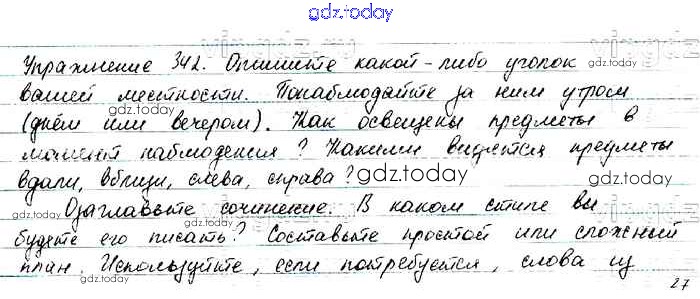 gdz.today
Упражнение 342. Опишите какой-либо уголок
вашей местности. Понаблюдайте за ним утром
(днём или вечером). Как освещены предметы в
момент наблюдения? Какими видятся предметы
вдали, вблизи, слева, справа?
Озаглавьте сочинение. В каком стиле вы
будете его писать? Составьте простой или сложный
план. Используйте, если потребуется, слова из
27